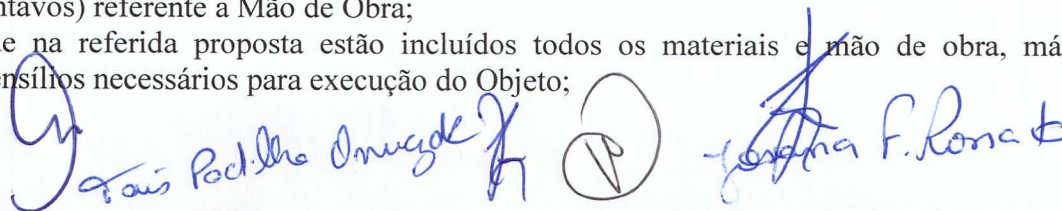 ntavos) referente a Mão de Obra;
e na referida proposta estão incluídos todos os materiais e mão de obra, má
ensílios necessários para execução do Objeto;
Tais Padilha
F.